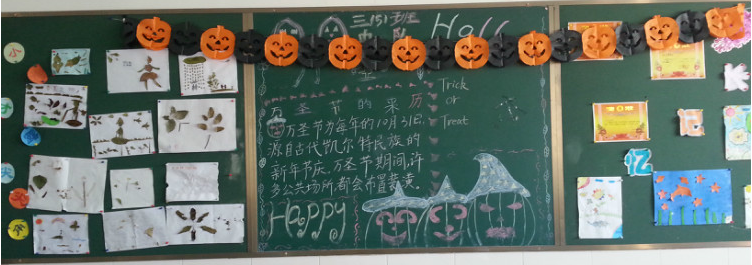 三(5)班
中队
Hall
万圣节的来历
万圣节为每年的10月31日,
源自古代凯尔特民族的
新年节庆,万圣节期间,许
多公共场所都会布置
Trick
or
Treat
Happy
忆